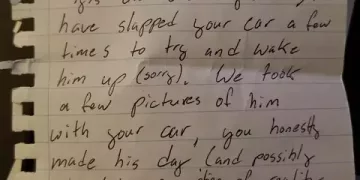 have slapped your car a few
times to try and wake
him up (sorry). We took
a few pictures of him
with your car, you honestly
made his day (and possibly